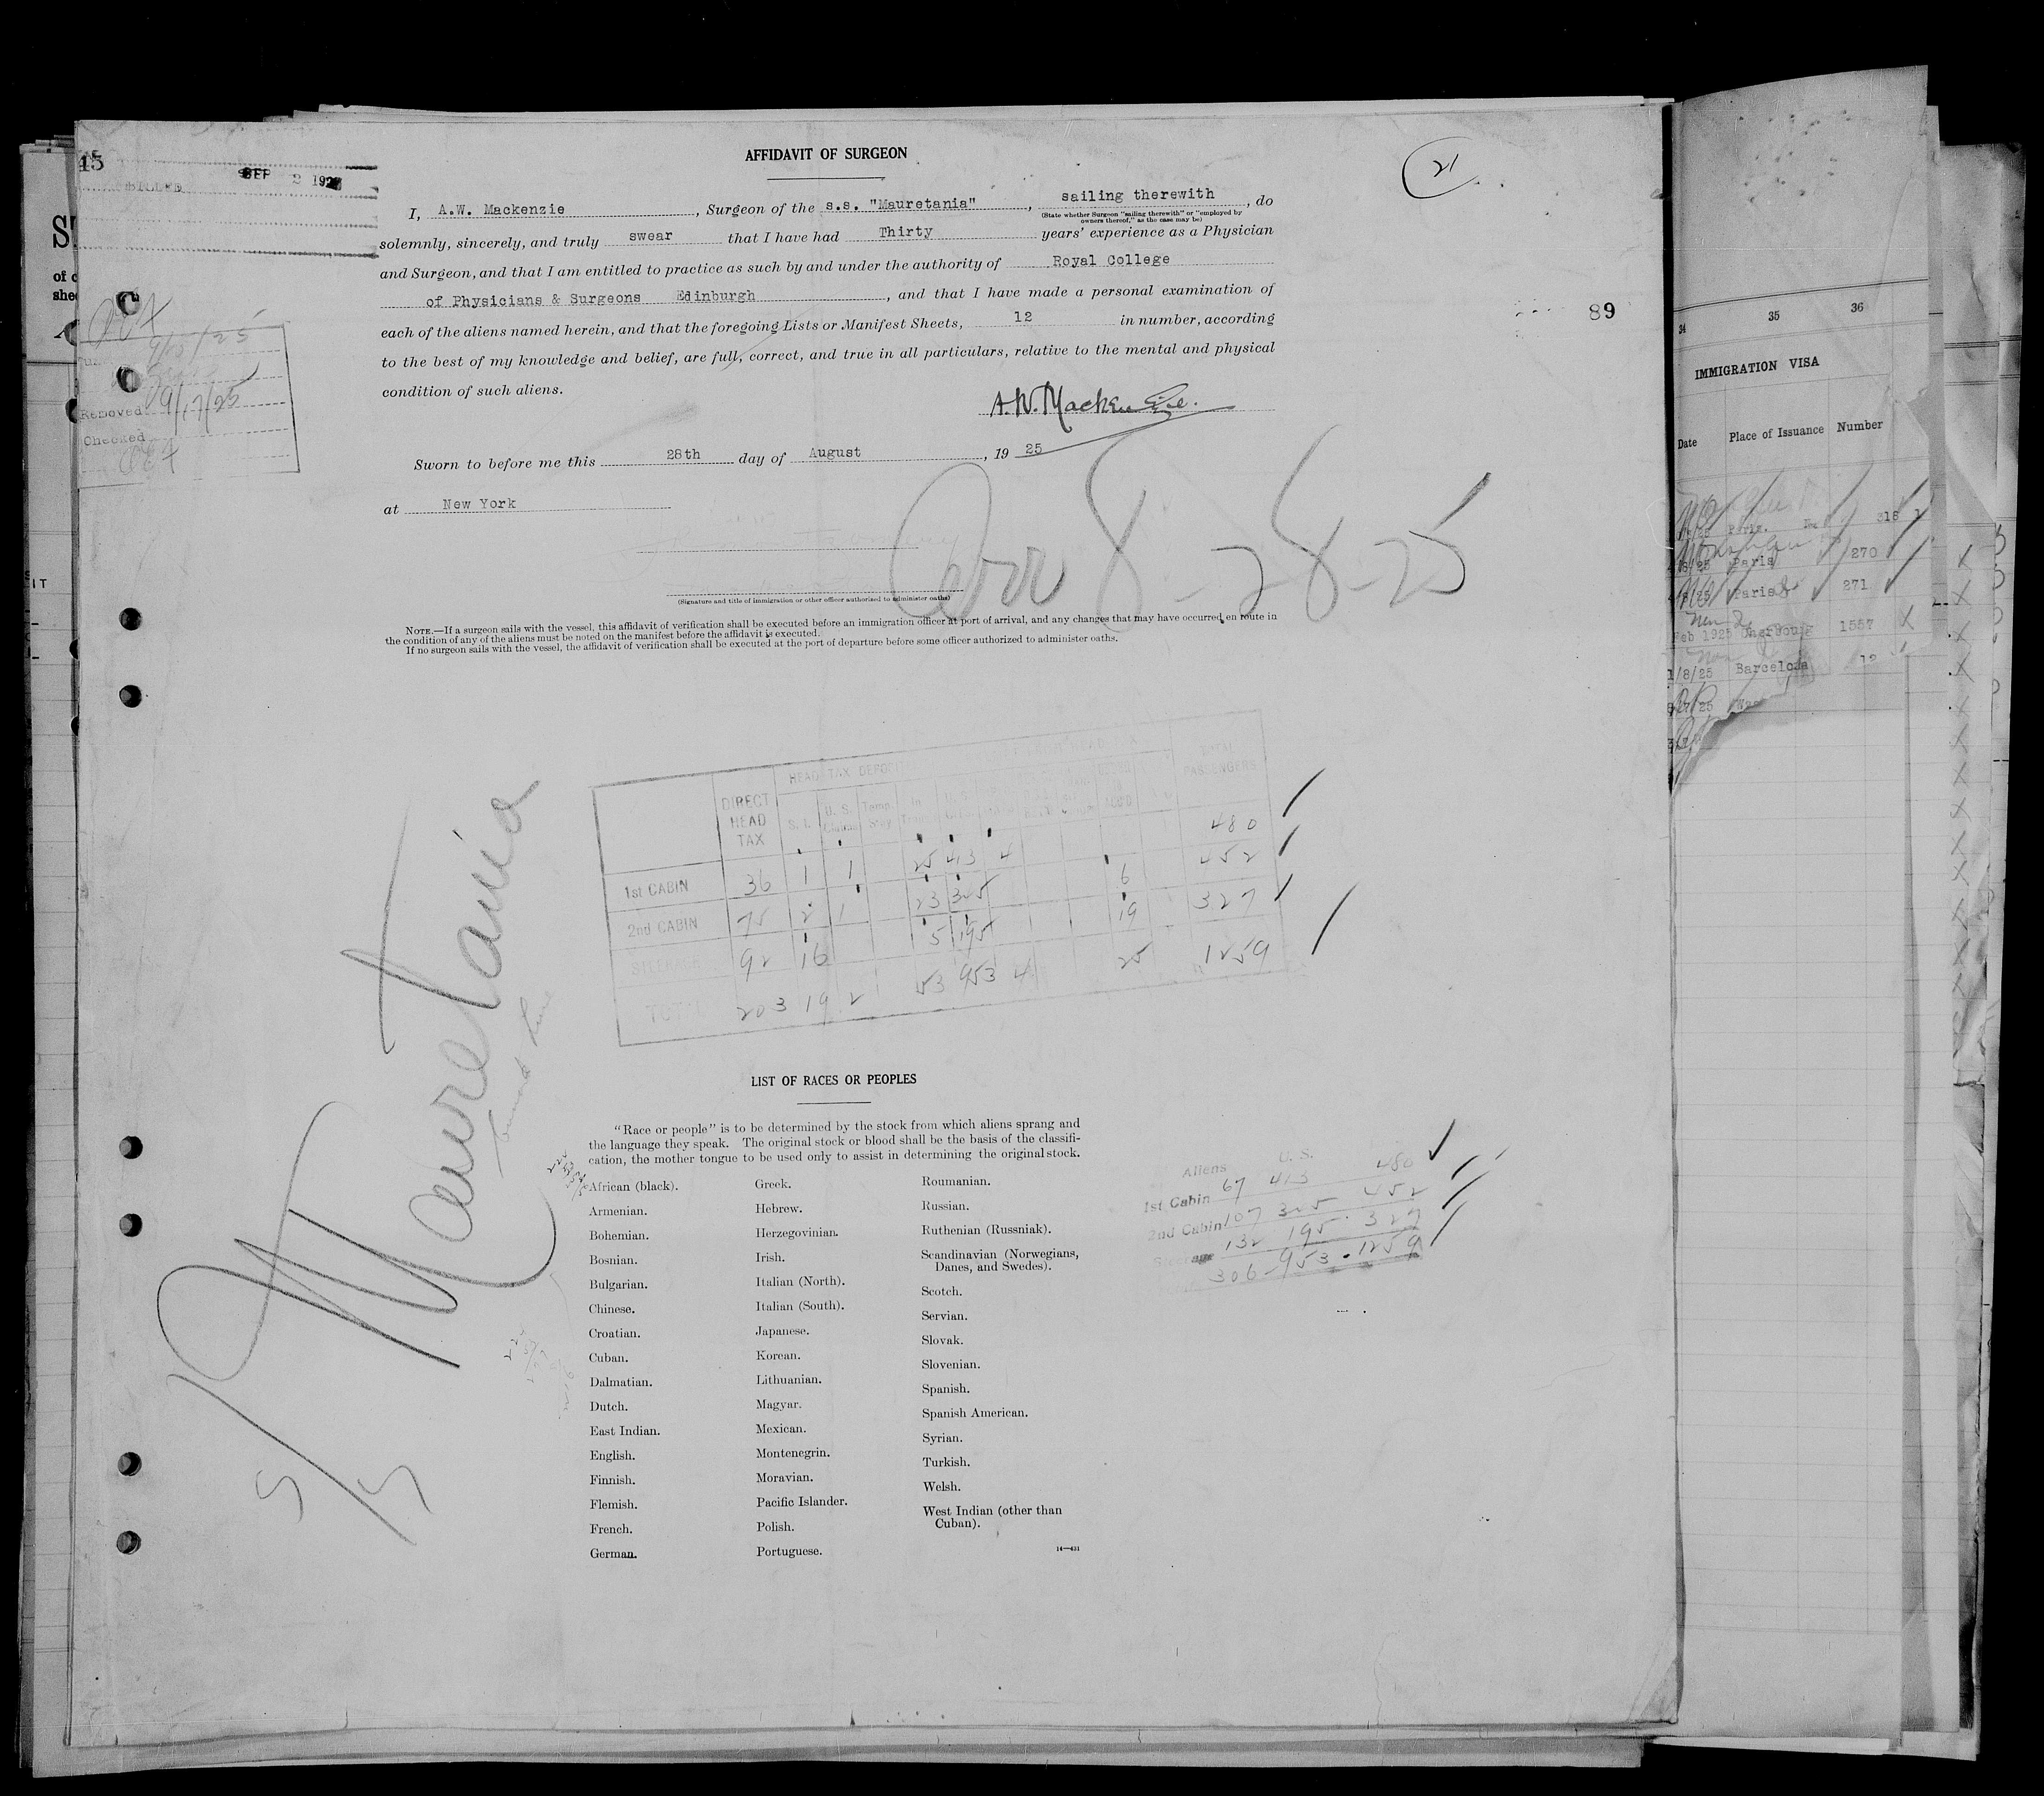 45
SEP 2 192
AFFIDAVIT OF SURGEON
21
I, A.W. Mackenzie, Surgeon of the s.s. "Mauretania", sailing therewith, do
(State whether Surgeon "sailing therewith" or "employed by
owners thereof," as the case may be)
solemnly, sincerely, and truly swear that I have had Thirty years' experience as a Physician
and Surgeon, and that I am entitled to practice as such by and under the authority of Royal College
of Physicians & Surgeons Edinburgh, and that I have made a personal examination of
each of the aliens named herein, and that the foregoing Lists or Manifest Sheets, 12 in number, according
to the best of my knowledge and belief, are full, correct, and true in all particulars, relative to the mental and physical
condition of such aliens.
A.W. Mackenzie.
Sworn to before me this 28th day of August, 19 25
at New York
(Signature and title of immigration or other officer authorized to administer oaths)
Arr 8-28-25
NOTE.—If a surgeon sails with the vessel, this affidavit of verification shall be executed before an immigration officer at port of arrival, and any changes that may have occurred en route in
the condition of any of the aliens must be noted on the manifest before the affidavit is executed.
If no surgeon sails with the vessel, the affidavit of verification shall be executed at the port of departure before some officer authorized to administer oaths.
Removed 9/17/25
Checked
89
34 35 36
IMMIGRATION VISA
Date Place of Issuance Number
Paris. 318
Paris 270
Paris 271
Feb 1925 Cherbourg 1557
1/8/25 Barcelona 12
HEAD TAX DEPOSIT
DIRECT HEAD TAX S. I. U. S. Temp. Stay In TOTAL PASSENGERS
1st CABIN 36 1 1 25 413 4 480
2nd CABIN 75 2 1 23 345 6 452
STEERAGE 92 16 5 195 19 327
TOTAL 203 19 2 53 953 4 25 1259
Mauretania
Cunard Line
LIST OF RACES OR PEOPLES
"Race or people" is to be determined by the stock from which aliens sprang and
the language they speak. The original stock or blood shall be the basis of the classifi-
cation, the mother tongue to be used only to assist in determining the original stock.
African (black).
Armenian.
Bohemian.
Bosnian.
Bulgarian.
Chinese.
Croatian.
Cuban.
Dalmatian.
Dutch.
East Indian.
English.
Finnish.
Flemish.
French.
German.
Greek.
Hebrew.
Herzegovinian.
Irish.
Italian (North).
Italian (South).
Japanese.
Korean.
Lithuanian.
Magyar.
Mexican.
Montenegrin.
Moravian.
Pacific Islander.
Polish.
Portuguese.
Roumanian.
Russian.
Ruthenian (Russniak).
Scandinavian (Norwegians,
Danes, and Swedes).
Scotch.
Servian.
Slovak.
Slovenian.
Spanish.
Spanish American.
Syrian.
Turkish.
Welsh.
West Indian (other than
Cuban).
14—431
Aliens U. S.
1st Cabin 67 413 480
2nd Cabin 107 345 452
Steerage 132 195 327
306 953 1259